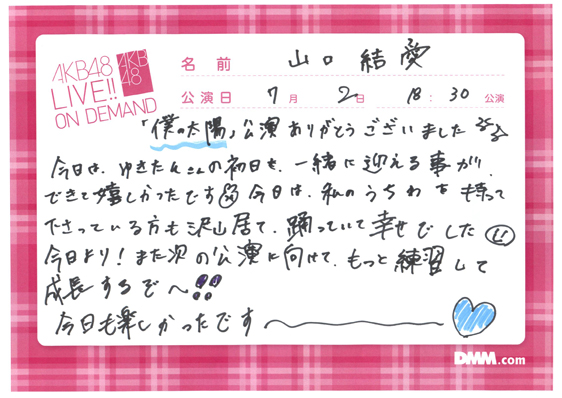 AKB48
LIVE!!
ON DEMAND
AKB
48
名前 山口結愛
公演日 7月 2日 18:30 公演
「僕の太陽」公演ありがとうございました
今日は、ゆきたんさんの初日を、一緒に迎える事が
できて嬉しかったです 今日は、私のうちわを持って
下さっている方も沢山居て、踊っていて幸せでした
今日より!また次の公演に向けて、もっと練習して
成長するぞ〜!!
今日も楽しかったです
DMM.com